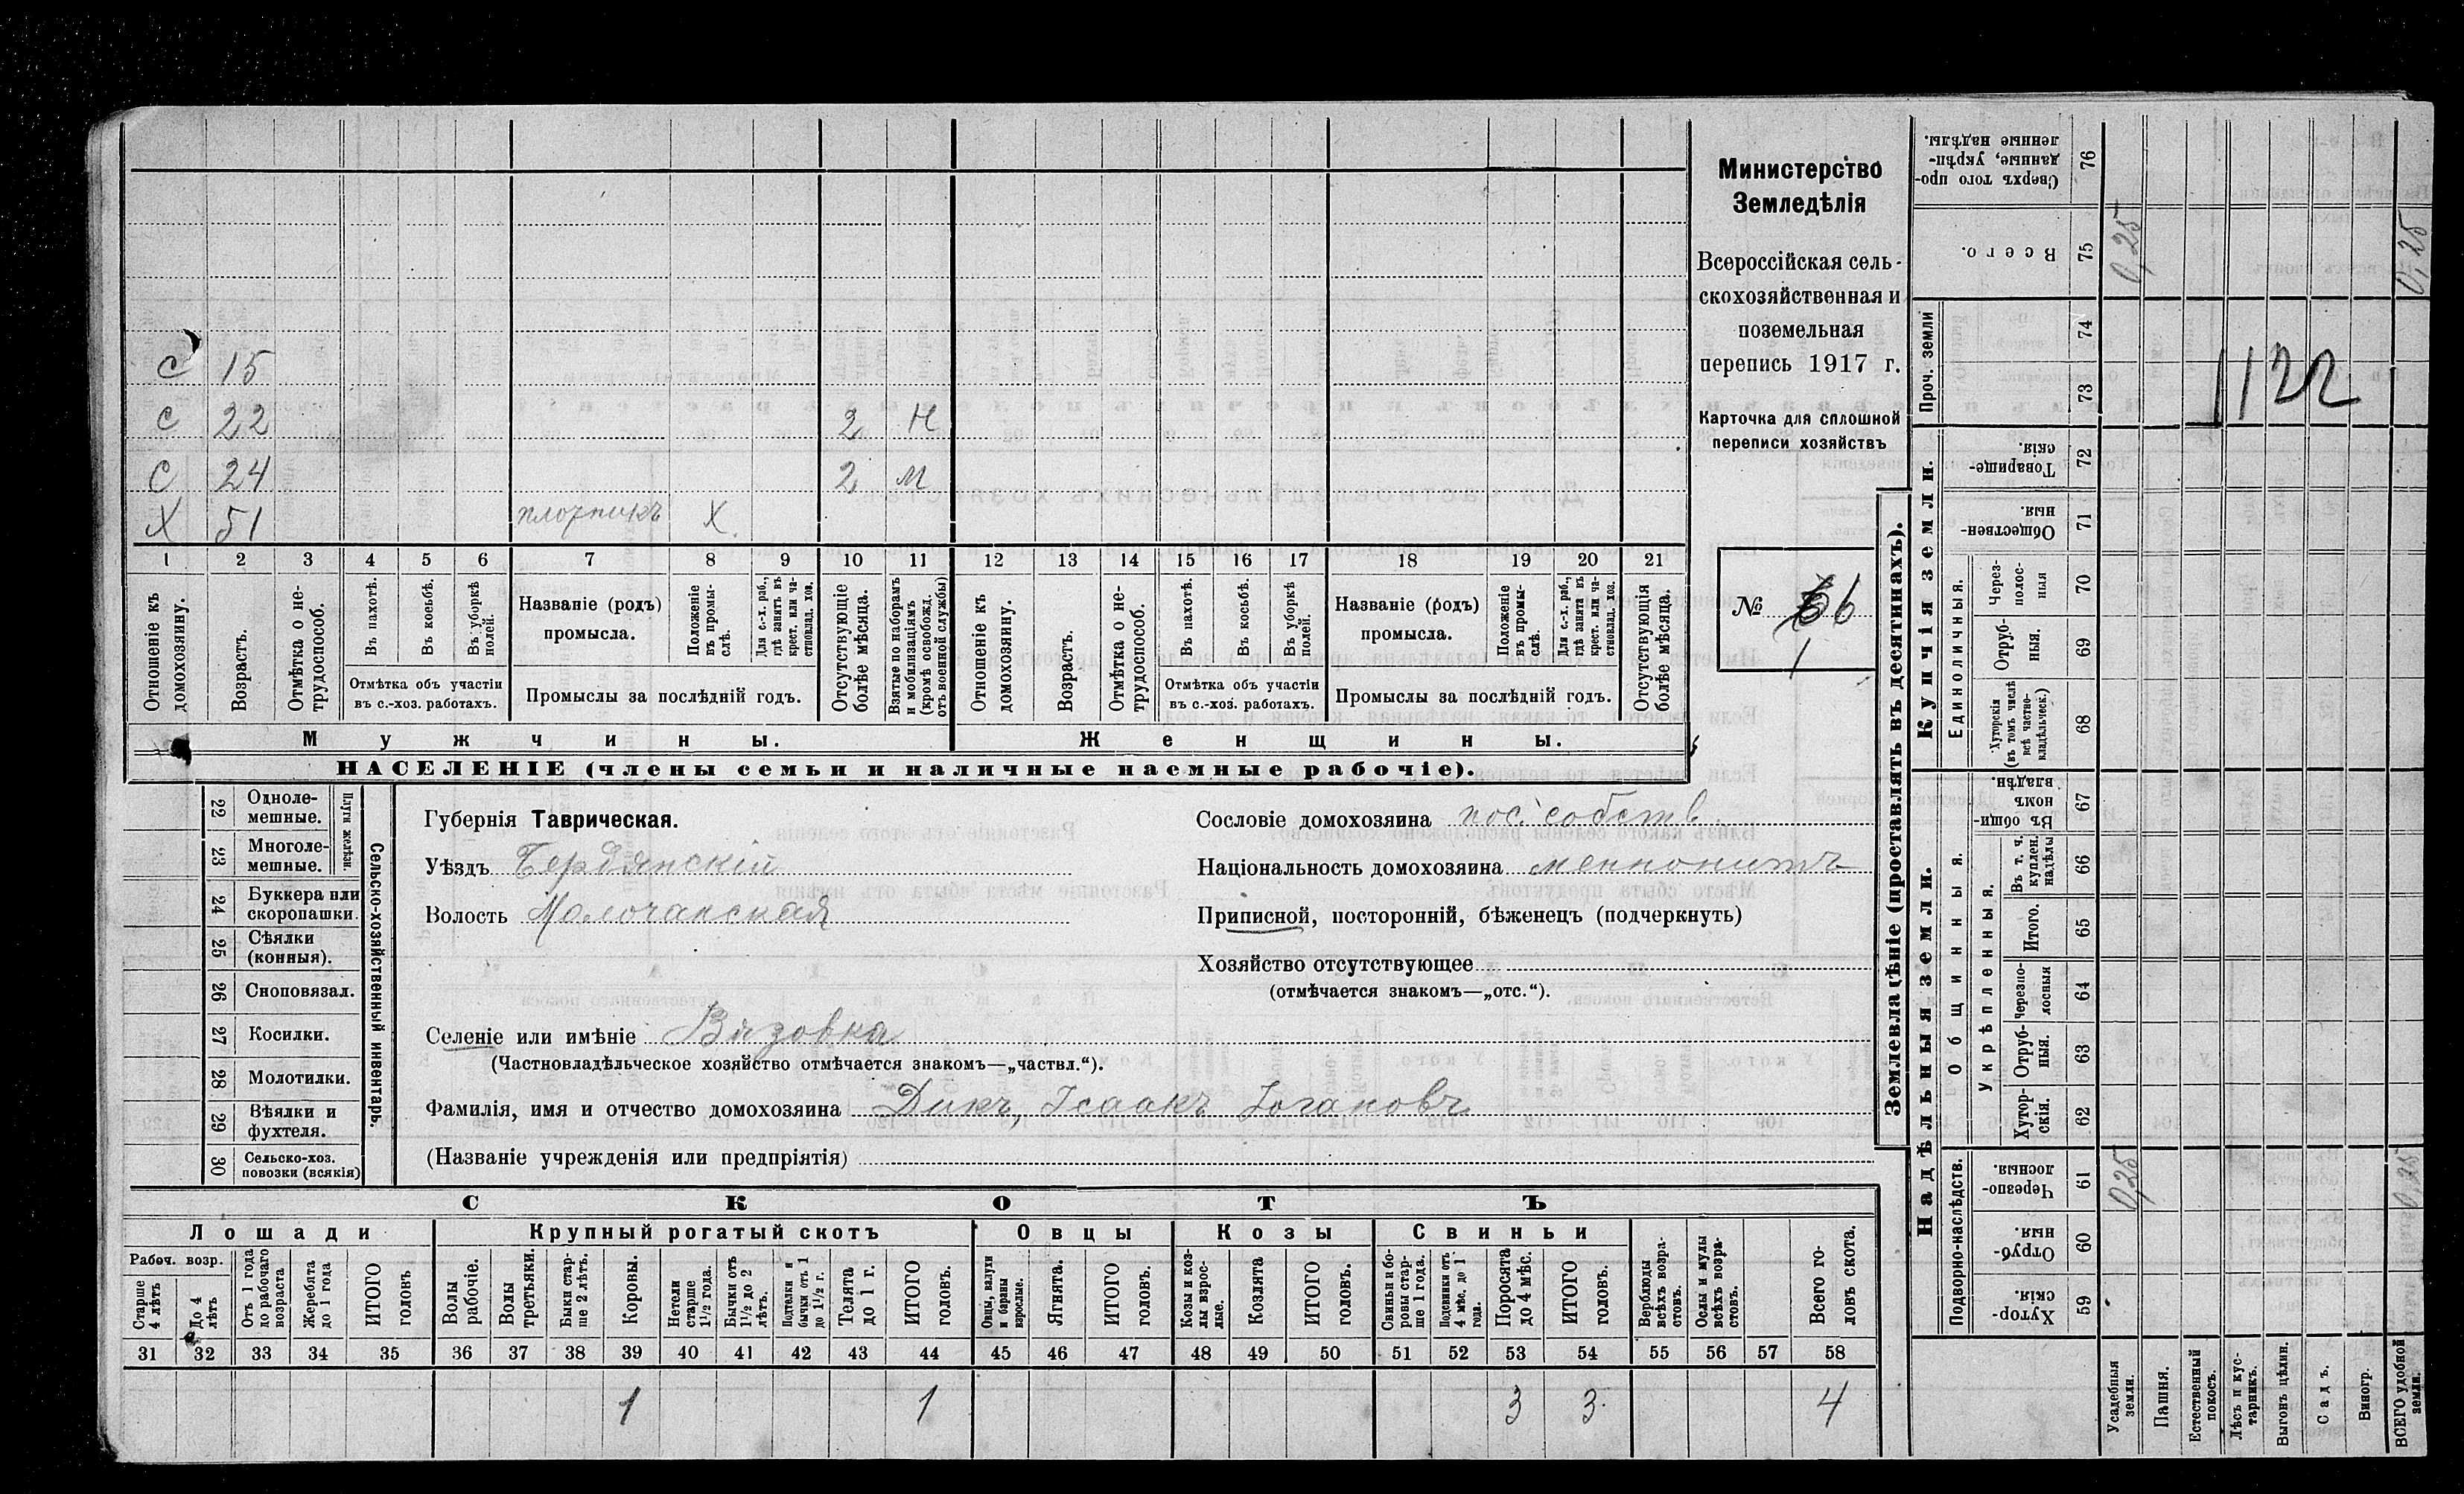 С 15
С 22 2 Н
С 24 2 М
Х 51 плотникъ Х
1 2 3 4 5 6 7 8 9 10 11 12 13 14 15 16 17 18 19 20 21
Отношеніе къ домохозяину.
Возрастъ.
Отмѣтка о не-трудоспособ.
Въ пахотѣ.
Въ косьбѣ.
Въ уборкѣ полей.
Отмѣтка объ участіи
въ с.-хоз. работахъ.
Названіе (родъ)
промысла.
Положеніе въ промы-слѣ.
Для с.-х. раб., гдѣ занятъ въ крест. или ча-стновлад. хоз.
Промыслы за послѣдній годъ.
Отсутствующіе болѣе мѣсяца.
Взятые по наборамъ и мобилизаціямъ (кромѣ освобожд. отъ военной службы)
Отношеніе къ домохозяину.
Возрастъ.
Отмѣтка о не-трудоспособ.
Въ пахотѣ.
Въ косьбѣ.
Въ уборкѣ полей.
Отмѣтка объ участіи
въ с.-хоз. работахъ.
Названіе (родъ)
промысла.
Положеніе въ промы-слѣ.
Для с.-х. раб., гдѣ занята въ крест. или ча-стновлад. хоз.
Промыслы за послѣдній годъ.
Отсутствующія болѣе мѣсяца.
Мужчины.
Женщины.
НАСЕЛЕНІЕ (члены семьи и наличные наемные рабочіе).
Министерство
Земледѣлія
Всероссійская сель-
скохозяйственная и
поземельная
перепись 1917 г.
Карточка для сплошной
переписи хозяйствъ
№ 6
1
22 Одноле-мешные.
23 Многоле-мешные.
Плуги желѣзн.
24 Буккера или скоропашки.
25 Сѣялки (конныя).
26 Сноповязал.
27 Косилки.
28 Молотилки.
29 Вѣялки и фухтеля.
30 Сельско-хоз. повозки (всякія)
Сельско-хозяйственный инвентарь.
Губернія Таврическая.
Уѣздъ Бердянскій
Волость Молочанская
Селеніе или имѣніе Вязовка
(Частновладѣльческое хозяйство отмѣчается знакомъ—„частвл.“).
Фамилія, имя и отчество домохозяина Дикъ, Исаакъ Іогановъ
(Названіе учрежденія или предпріятія)
Сословіе домохозяина пос. собств.
Національность домохозяина меннонитъ
Приписной, посторонній, бѣженецъ (подчеркнуть)
Хозяйство отсутствующее
(отмѣчается знакомъ—„отс.“).
СКОТЪ
Лошади
Крупный рогатый скотъ
Овцы
Козы
Свиньи
Рабоч. возр.
Старше 4 лѣтъ
До 4 лѣтъ
Отъ 1 года до рабочаго возраста
Жеребята до 1 года
ИТОГО головъ
Волы рабочіе.
Волы третьяки.
Быки стар-ше 2 лѣтъ.
Коровы.
Нетели старше 1½ года.
Бычки отъ 1½ до 2 лѣтъ.
Подтелки и бычки отъ 1 до 1½ г.
Телята до 1 г.
ИТОГО головъ.
Овцы, валухи и бараны взрослые.
Ягнята.
ИТОГО головъ.
Козы и коз-лы взрос-лые.
Козлята
ИТОГО головъ.
Свиньи и бо-ровы стар-ше 1 года.
Подсвинки отъ 4 мѣс. до 1 года.
Поросята до 4 мѣс.
ИТОГО головъ.
Верблюды всѣхъ возра-стовъ.
Ослы и мулы всѣхъ возра-стовъ.
Всего го-ловъ скота.
31 32 33 34 35 36 37 38 39 40 41 42 43 44 45 46 47 48 49 50 51 52 53 54 55 56 57 58
1 1 3 3 4
Землевладѣніе (проставлять въ десятинахъ).
Купчія земли.
Надѣльныя земли.
76 Сверхъ того про-данные, укрѣп-ленные надѣлы.
75 Всего. 0,25 0,25
Проч. земли
74
73
1122
72 Товарище-скія.
71 Обществен-ныя.
Единоличныя.
70 Через-полос-ныя
69 Отруб-ныя.
68 Хуторскія (въ томъ числѣ всѣ частно-владѣльческ.)
Общинныя.
67 Въ общи-номъ владѣн.
Укрѣпленныя.
66 Въ т. ч. куплен. надѣлы
65 Итого.
64 Черезпо-лосныя
63 Отруб-ныя.
62 Хутор-скія.
Подворно-наслѣдств.
61 Черезпо-лосныя. 0,25 0,25
60 Отруб-ныя.
59 Хутор-скія.
Усадебныя земли.
Пашня.
Естественный покосъ.
Лѣсъ и кус-тарникъ.
Выгонъ цѣлин.
Садъ.
Виногр.
ВСЕГО удобной земли.